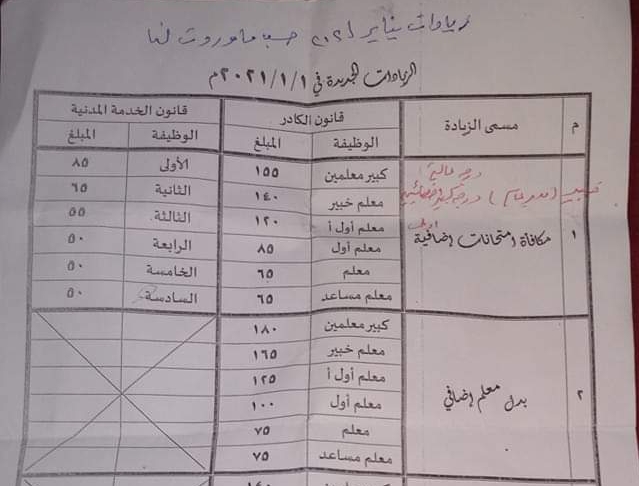 زيادات يناير ٢٠٢١ حسب ما وردت لنا
الزيادات الجديدة في ٢٠٢١/١/١م
م مسمى الزيادة قانون الكادر قانون الخدمة المدنية
الوظيفة المبلغ الوظيفة المبلغ
كبير معلمين ١٥٥ الأولى ٨٥
معلم خبير ١٤٠ الثانية ٦٥
١ مكافأة امتحانات إضافية معلم أول أ ١٢٠ الثالثة ٥٥
معلم أول ٨٥ الرابعة ٥٠
معلم ٦٥ الخامسة ٥٠
معلم مساعد ٦٥ السادسة ٥٠
كبير معلمين ١٨٠
معلم خبير ١٦٥
معلم أول أ ١٢٥
٢ بدل معلم إضافي معلم أول ١٠٠
معلم ٧٥
معلم مساعد ٧٥